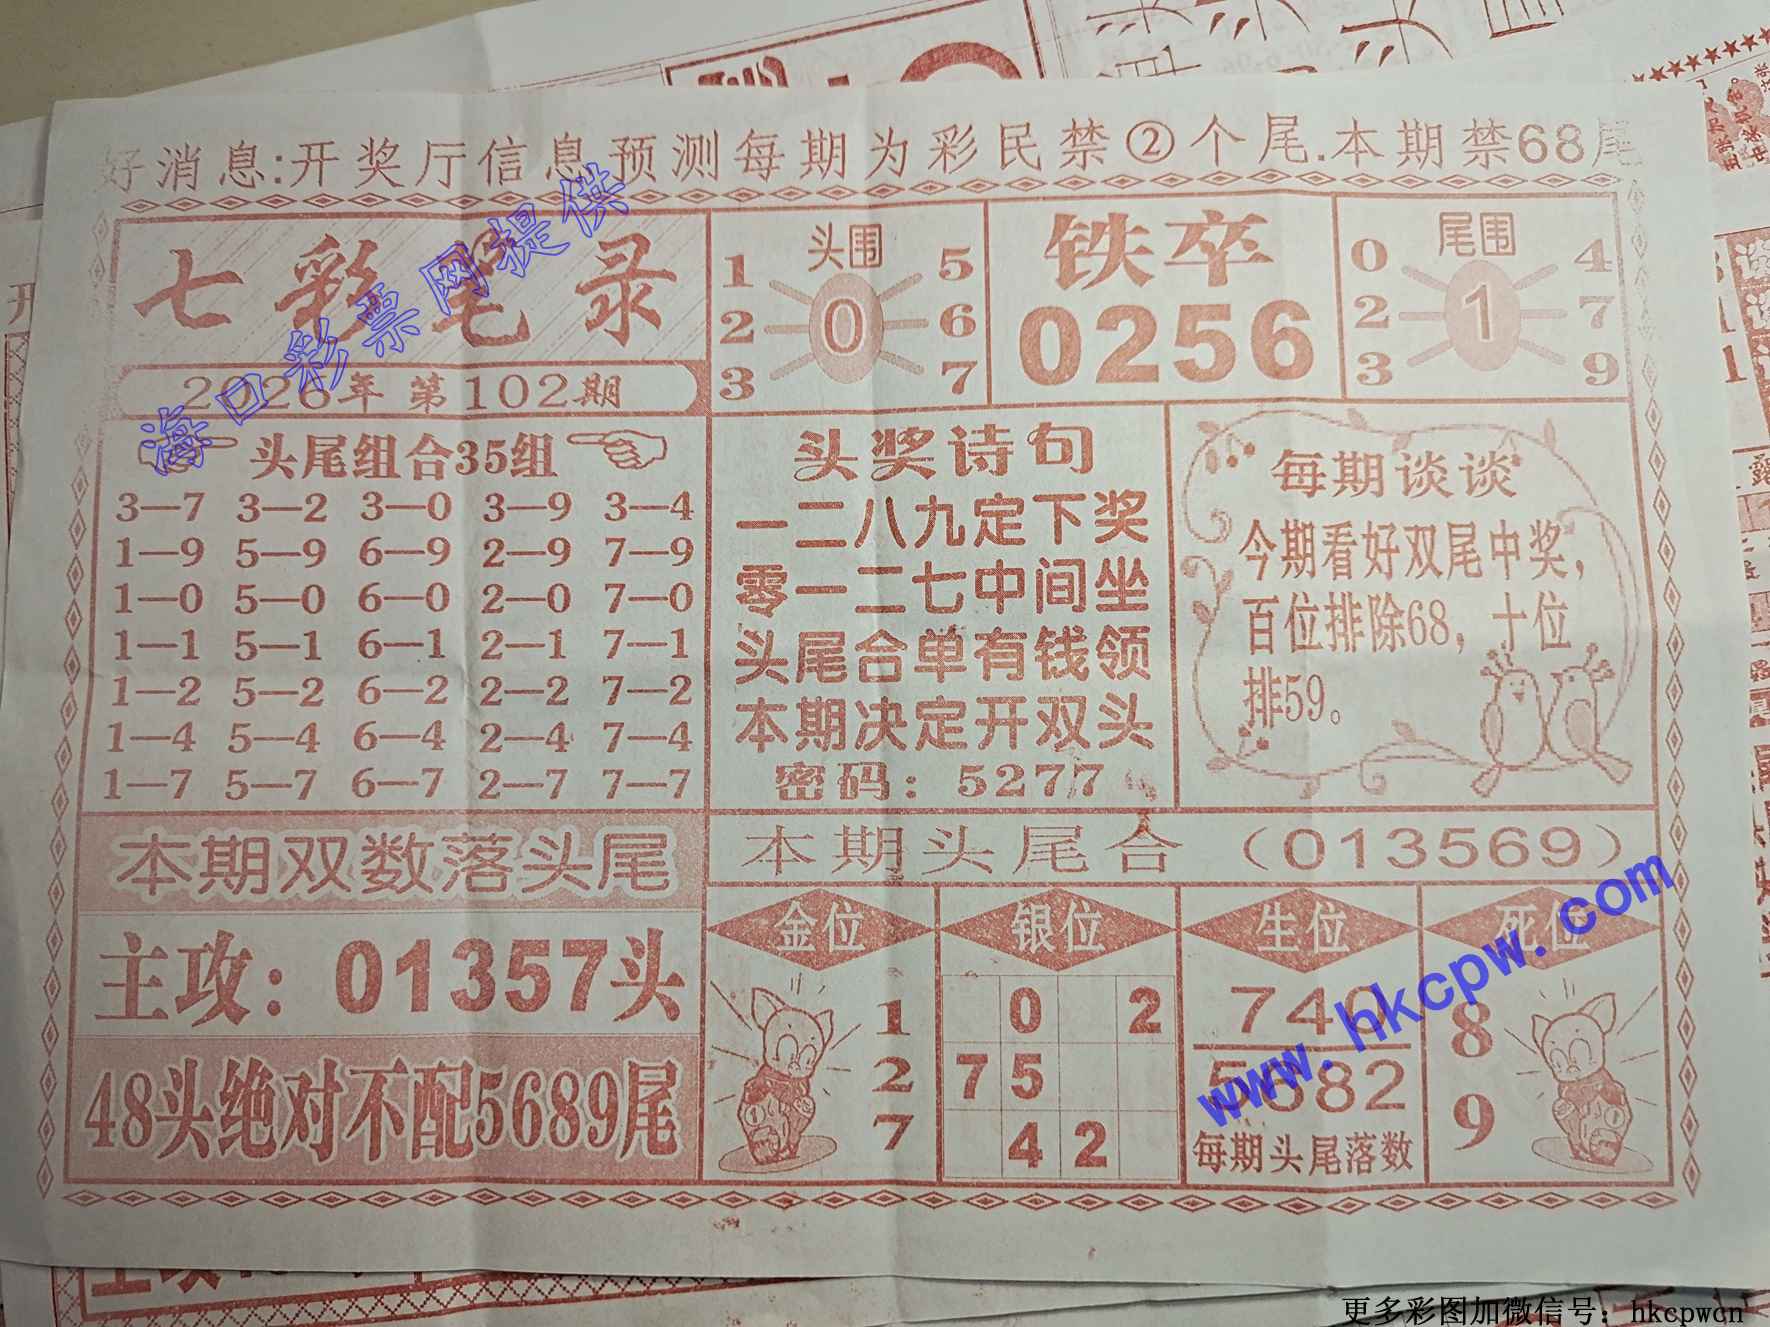 好消息:开奖厅信息预测每期为彩民禁②个尾.本期禁68尾
七彩笔录
2026年 第102期
头围
1 5
2 0 6
3 7
铁卒
0256
尾围
0 4
2 1 7
3 9
头尾组合35组
3—7 3—2 3—0 3—9 3—4
1—9 5—9 6—9 2—9 7—9
1—0 5—0 6—0 2—0 7—0
1—1 5—1 6—1 2—1 7—1
1—2 5—2 6—2 2—2 7—2
1—4 5—4 6—4 2—4 7—4
1—7 5—7 6—7 2—7 7—7
头奖诗句
一二八九定下奖
零一二七中间坐
头尾合单有钱领
本期决定开双头
密码：5277
每期谈谈
今期看好双尾中奖，
百位排除68，十位
排59。
本期双数落头尾
主攻：01357头
48头绝对不配5689尾
本期头尾合（013569）
金位
1
2
7
银位
0 2
7 5
4 2
生位
740
5682
每期头尾落数
死位
8
9
海口彩票网提供
www.hkcpw.com
更多彩图加微信号：hkcpwcn